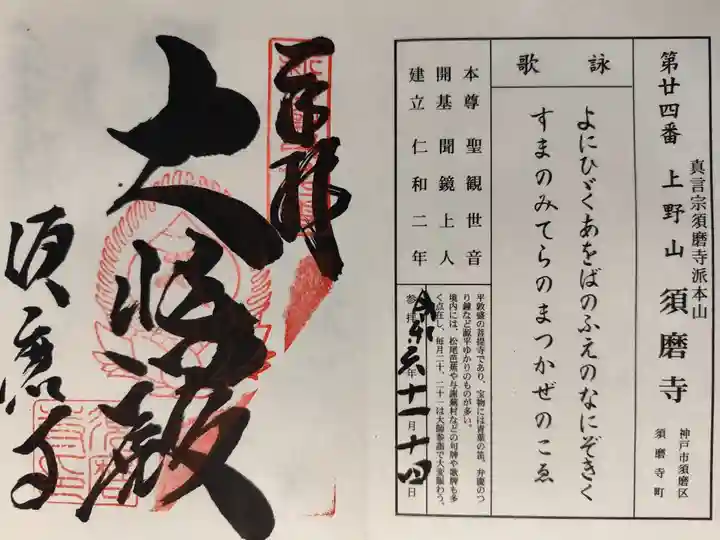 第廿四番 上野山 須磨寺
真言宗須磨寺派本山
神戸市須磨区
須磨寺町
詠歌
よにひゞくあをばのふえのなにぞきく
すまのみてらのまつかぜのこゑ
本尊 聖観世音
開基 聞鏡上人
建立 仁和二年
平敦盛の菩提寺であり、宝物には青葉の笛、弁慶のつ
り鐘など源平ゆかりのものが多い。
境内には、松尾芭蕉や与謝蕪村などの句碑や歌碑も多
く点在し、毎月二十、二十一は大師参詣で大変賑わう。
参拝 令和六年十一月十四日
奉拝
大悲殿
須磨寺